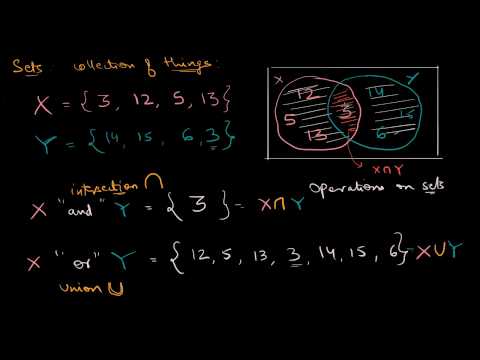 Sets : collection of things :
X = { 3, 12, 5, 13}
Y = {14, 15, 6, 3}
X Y
12 14
5 3 15
13 6
X∩Y
intersection ∩
Operations on sets
X "and" Y = { 3 } = X∩Y
X "or" Y = { 12, 5, 13, 3, 14, 15, 6} = X∪Y
union ∪